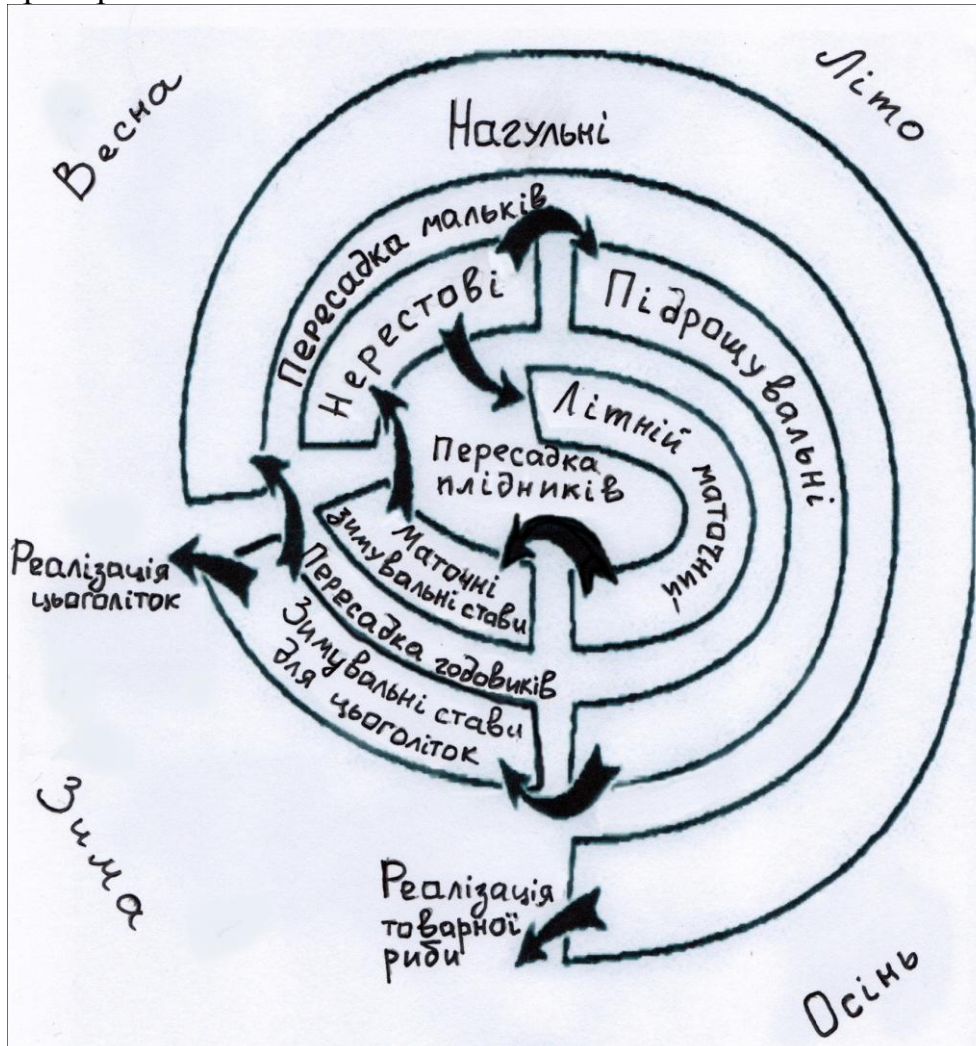 Весна
Літо
Нагульні
Пересадка мальків
Нерестові
Підрощувальні
Літній маточний
Пересадка
плідників
Маточні
зимувальні стави
Пересадка годовиків
Зимувальні стави
для цьоголіток
Реалізація
цьоголіток
Зима
Реалізація
товарної
риби
Осінь